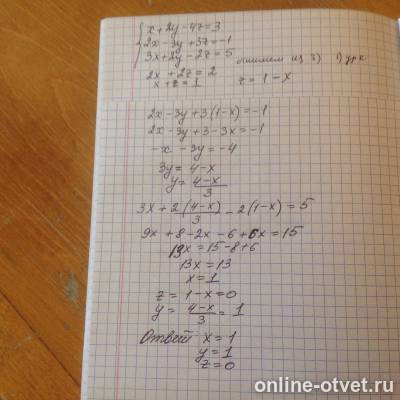 x+2y-4z=3
2x-3y+3z=-1
3x+2y-2z=5 из 3) 1) ур
2x+2z=2
x+z=1 z=1-x
2x-3y+3(1-x)=-1
2x-3y+3-3x=-1
-x-3y=-4
3y=4-x
y=\frac{4-x}{3}
3x+\frac{2(4-x)}{3}-2(1-x)=5
9x+8-2x-6+6x=15
13x=15-8+6
13x=13
x=1
z=1-x=0
y=\frac{4-x}{3}=1
Ответ x=1
y=1
z=0
online-otvet.ru